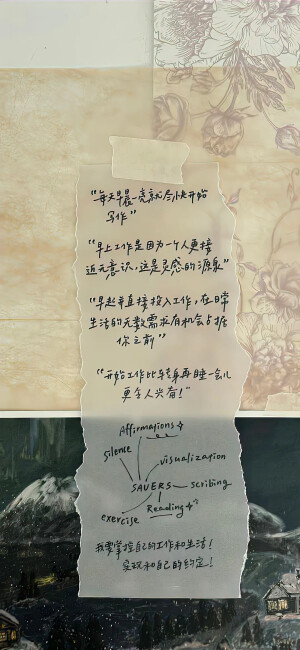 “每天早晨一亮就尽快开始
写作”
“早上工作是因为一个人更接
近无意识，这是灵感的源泉”
“早起并直接投入工作，在日常
生活的无数需求有机会占据
你之前”
“开始工作比转身再睡一会儿
更令人兴奋！”
Affirmations
silence
visualization
SAVERS
scribing
Reading
exercise
我要掌控自己的工作和生活！
实现和自己的约定！